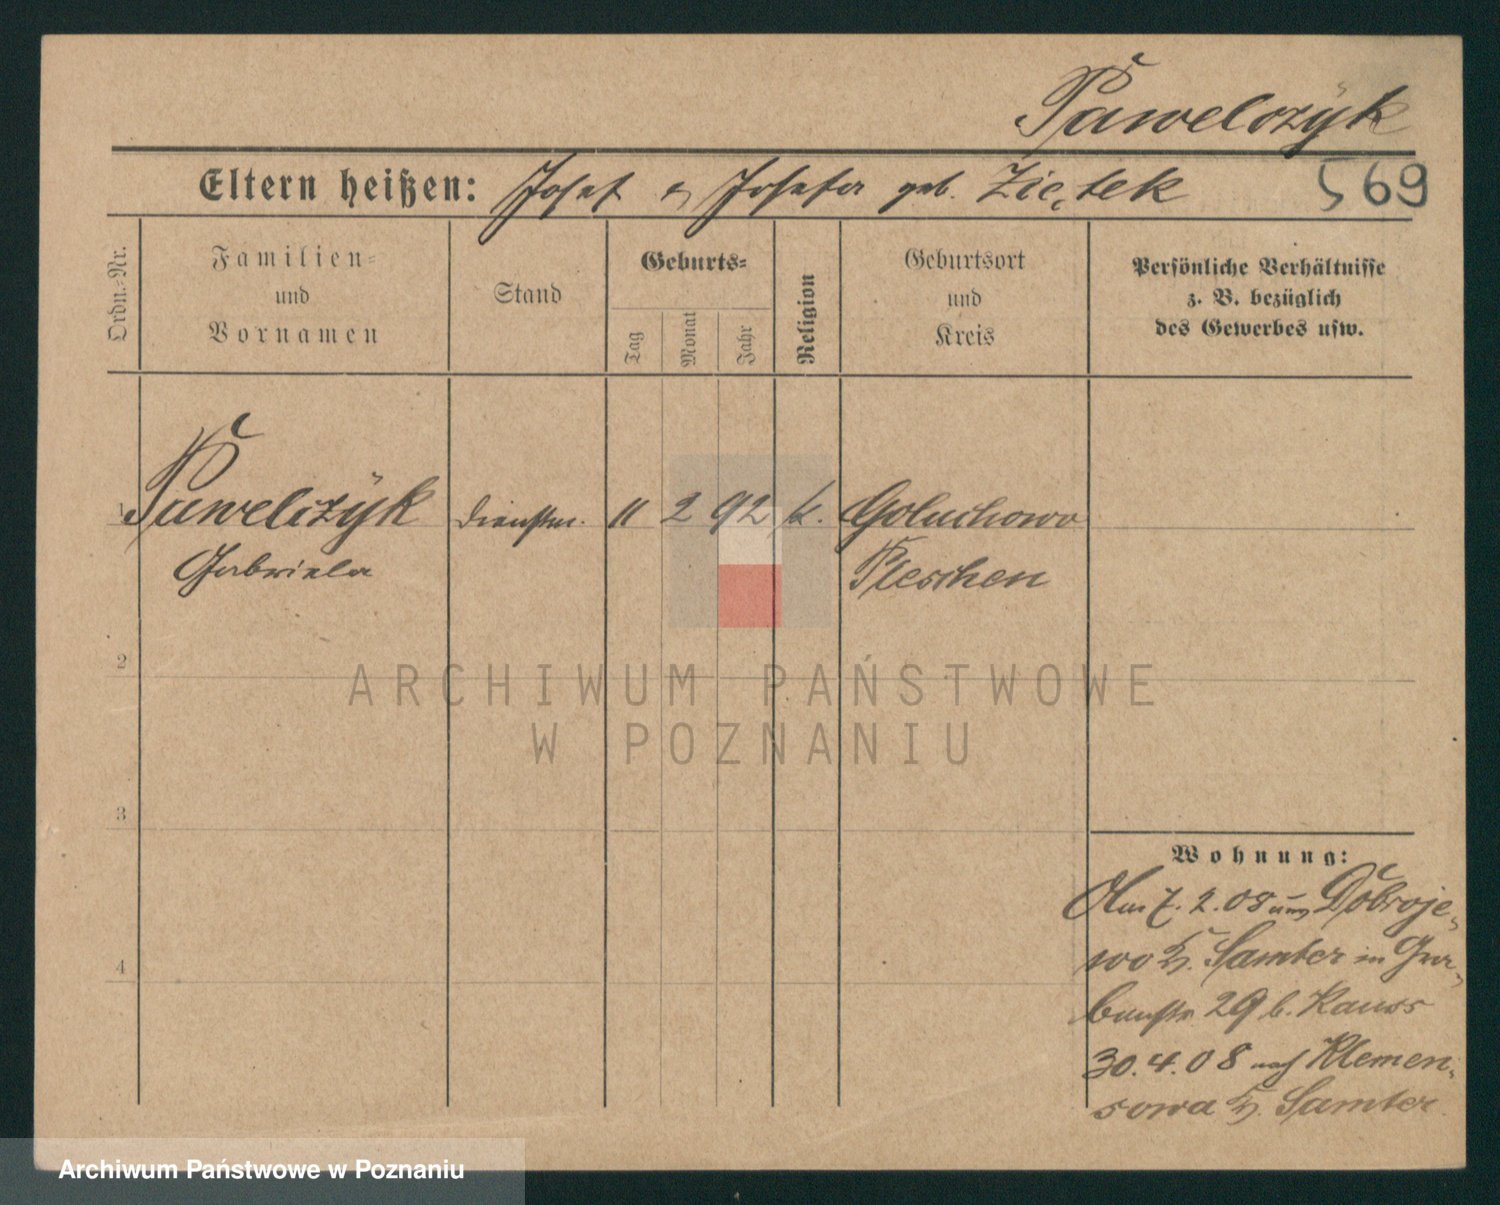 Pawelczyk
Eltern heißen: Josef u Josefa geb. Ziętek 569
Ordn.-Nr.
Familien-
und
Vornamen
Stand
Geburts-
Tag
Monat
Jahr
Religion
Geburtsort
und
Kreis
Persönliche Verhältnisse
z. B. bezüglich
des Gewerbes usw.
1 Pawelczyk Dienstm. 11 2 92 k. Goluchowo
Gabriela Pleschen
2
ARCHIWUM PAŃSTWOWE
W POZNANIU
3
4
Wohnung:
Am 7. 2. 08 aus Dobroje-
wo Kr. Samter in Gra-
benstr 29 b. Kauss
30. 4. 08 nach Klemen-
sowa Kr. Samter
Archiwum Państwowe w Poznaniu